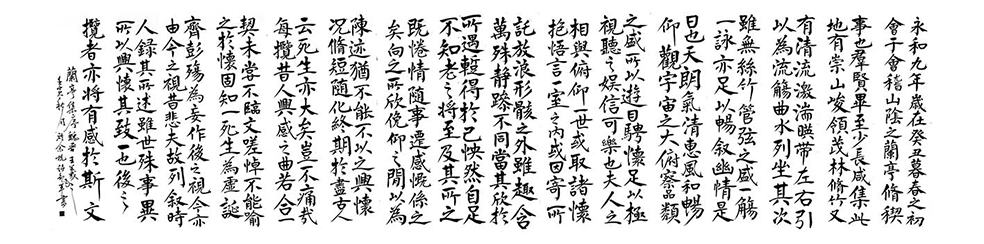 永和九年歲在癸丑暮春之初
會于會稽山陰之蘭亭脩稧
事也群賢畢至少長咸集此
地有崇山峻領茂林脩竹又
有清流激湍暎帶左右引
以為流觴曲水列坐其次
雖無絲竹管弦之盛一觴
一詠亦足以暢叙幽情是
日也天朗氣清惠風和暢
仰觀宇宙之大俯察品類
之盛所以遊目騁懷足以極
視聽之娛信可樂也夫人之
相與俯仰一世或取諸懷
抱悟言一室之內或因寄所
託放浪形骸之外雖趣舍
萬殊静躁不同當其欣於
所遇蹔得於己怏然自足
不知老之將至及其所之
既惓情隨事遷感慨係之
矣向之所欣俛仰之閒以為
陳迹猶不能不以之興懷
况脩短隨化終期於盡古人
云死生亦大矣豈不痛哉
每攬昔人興感之由若合一
契未嘗不臨文嗟悼不能喻
之於懷固知一死生為虛誕
齊彭殤為妄作後之視今亦
由今之視昔悲夫故列叙時
人録其所述雖世殊事異
所以興懷其致一也後之
攬者亦將有感於斯文
蘭亭集序